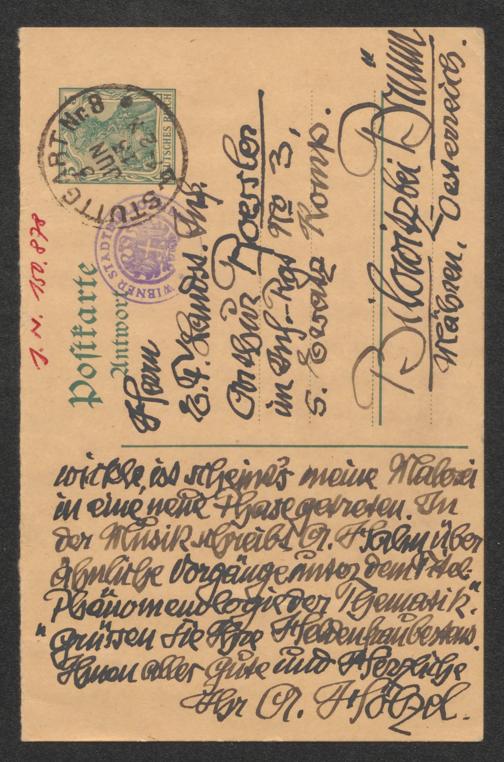 Postkarte
Antwort
DEUTSCHES REICH
STUTTGART Nr. 8
JUN
WIENER STADT
J. N. 150.878
Herrn
E. F. Landst. Inf.
Arthur Roessler
im Inf-Rgt No 3,
5. Ersatz Komp.
Bilowitz bei Brünn
Mähren, Oesterreich.
wickle, ist scheint's meine Malerei
in eine neue Phase getreten. In
der Musik schreibt A. Halm über
ähnliche Vorgänge unter dem Titel
Phänomenologie der Thematik."
"grüssen Sie Ihre Heldenfrau bestens.
Ihnen alles Gute und Herzliche
Ihr A. Hölzel.